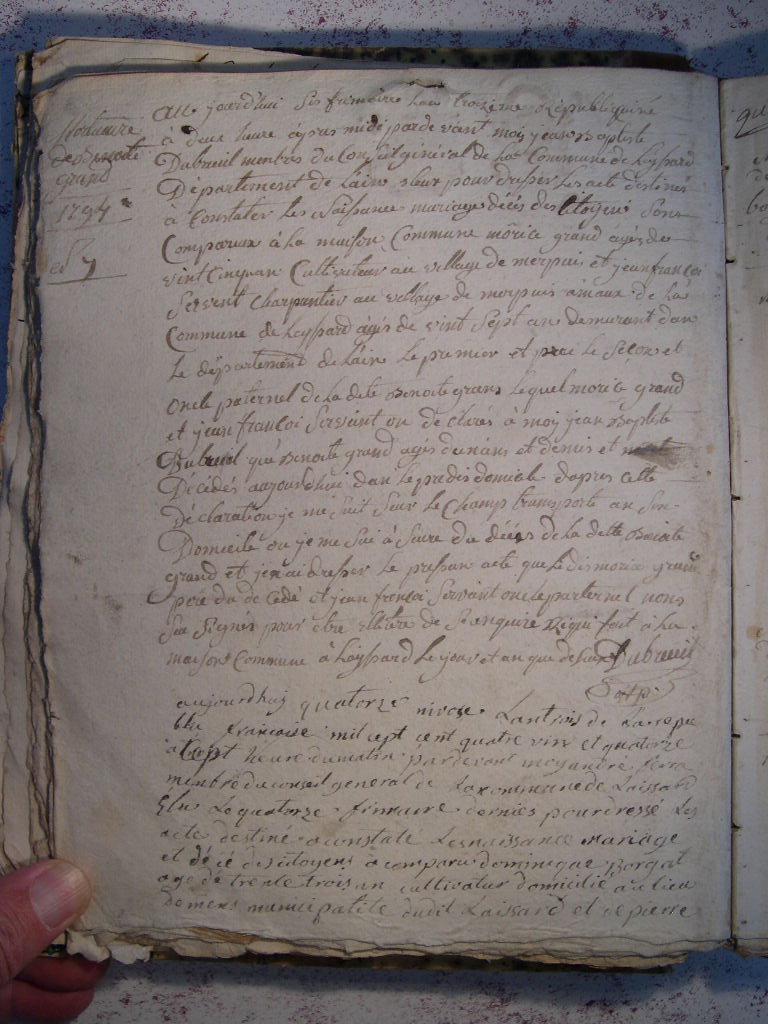 Mortuaire
de Benoite
grand
1794
au jourd'hui six frimaire lan troizieme Republiquine
à deux heure apres midi par devant moy jean Baptiste
Dubreuil membres du Conseil général de la Commune de Leyssard
Département de Lain eleu pour dresser les acte destinés
à Constater les Naissance mariage décés des Citoyens sons
Comparux à la maison Commune moric grand agés de
vint cinq an Cultivateur au village de merpuis et jean françoi
Servent Charpentier au village de merpuis amaux de la
Commune de Leyssard agés de vint Sept an demurant dan
le département de Lain le premier et le Second
oncle paternel de la dite Benoite grand lequel moric grand
et jean françoi Servent on declarés à moy jean Baptiste
Dubreuil que Benoite grand agés dun ans et demis et
Décédés aujourd'hui dan le domicile dapres cette
Déclaration je me suit Sur le Champ transporté an Son
Domicile ou je me Sui à Surée du décés de la ditte Benoite
grand et jen ai dresser le presan acte que le dis moric grand
pere du decedé et jean françoi Servant oncle parternel nons
Su Signer pour être de Requi fait à la
maison Commune à Leyssard le jour et an que desus Dubreuil
aujourdhuy quatorze nivose Lantrois de La repu
blic francaise mil cept cent quatre vint et quatorze
a cept heure du matin pardevant moy andré ferra
menbre du conseil general de La commune de Laissard
Elu Le quatorze frimaire dernies pour dressé Les
acte destiné a constaté Les naissance Mariage
et décé des citoyens a comparu dominique Borgat
age de trente trois an cultivatur domicilié au lieu
de mens municipatité dudit Laissard et de pierre